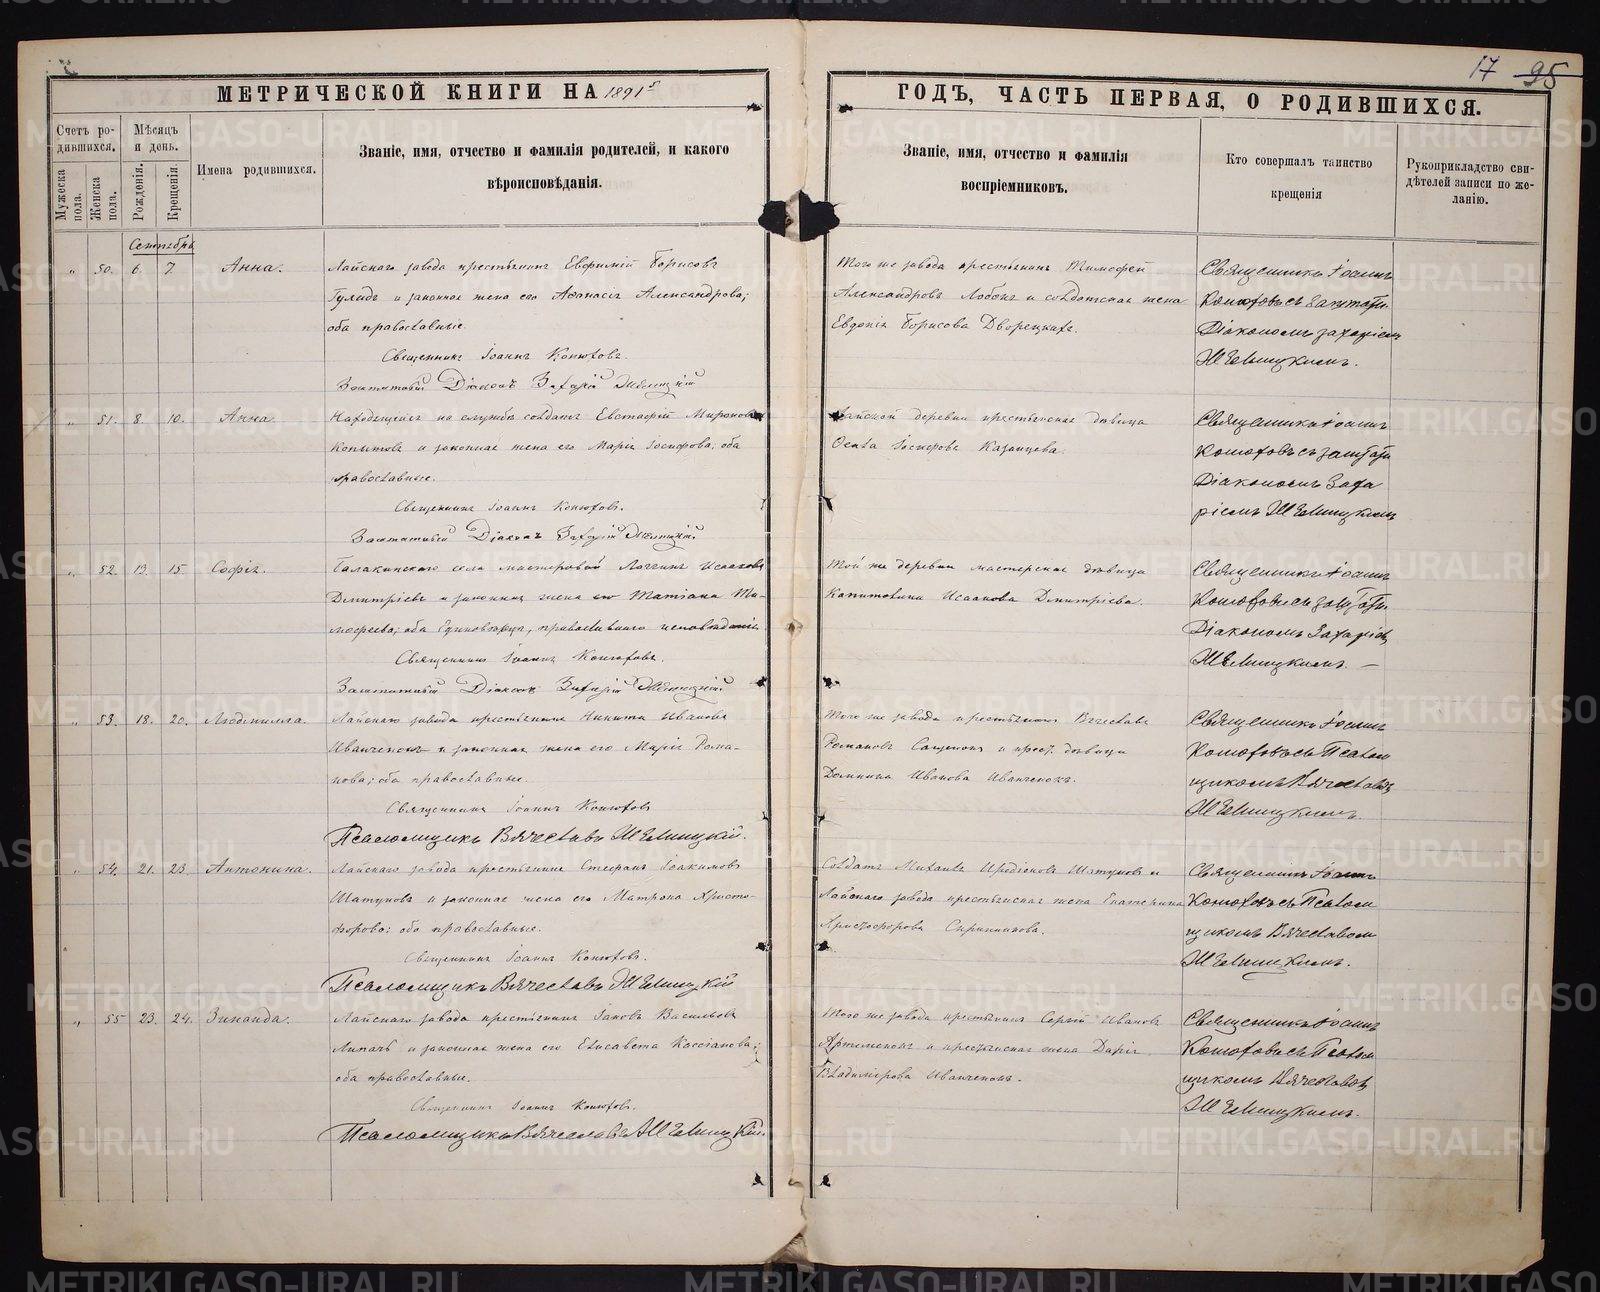 17 95
МЕТРИЧЕСКОЙ КНИГИ НА 1891 г
ГОДЪ, ЧАСТЬ ПЕРВАЯ, О РОДИВШИХСЯ.
Счетъ ро-
дившихся.
Мужеска
пола.
Женска
пола.
Мѣсяцъ
и день.
Рожденія.
Крещенія.
Имена родившихся.
Званіе, имя, отчество и фамилія родителей, и какого
вѣроисповѣданія.
Званіе, имя, отчество и фамилія
воспріемниковъ.
Кто совершалъ таинство
крещенія
Рукоприкладство сви-
дѣтелей записи по же-
ланію.
Сентябрь
" 50. 6. 7. Анна.
Лайскаго завода крестьянинъ Евфимій Борисовъ
Гулидъ и законная жена его Аѳанасія Александрова;
оба православные.
Священникъ Іоаннъ Конюховъ.
Заштатный Діаконъ Захарій
Того же завода крестьянинъ Тимофей
Александровъ Лобонъ и солдатская жена
Евдокія Борисова Дворецкихъ.
Священникъ Іоаннъ
Конюховъ съ заштатн.
Діакономъ Захаріем
" 51. 8. 10. Анна.
Находящійся на службѣ солдатъ Евстафій Мироновъ
Копытовъ и законная жена его Марія Іосифова; оба
православные.
Священникъ Іоаннъ Конюховъ.
Заштатный Діаконъ Захарій
Лайской деревни крестьянская дѣвица
Іосифова Казанцева.
Священникъ Іоаннъ
Конюховъ съ заштатн
Діакономъ Заха
ріемъ
" 52. 13. 15. Софія.
Балакинскаго села мастеровой Логгинъ Исааковъ
Дмитріевъ и законная жена его Татіана Ти-
моѳеева; оба Единовѣрцы, православнаго исповѣданія.
Священникъ Іоаннъ Конюховъ.
Заштатный Діаконъ Захарій
Той же деревни мастерская дѣвица
Капитолина Исаакова Дмитріева.
Священникъ Іоаннъ
Конюховъ съ заштатн.
Діакономъ Захаріем
" 53. 18. 20. Людмилла.
Лайскаго завода крестьянинъ Никита Ивановъ
Иванченокъ и законная жена его Марія Рома-
нова; оба православные.
Священникъ Іоаннъ Конюховъ
Псаломщикъ Вячеславъ
Того же завода крестьянинъ Вячеславъ
Романовъ и крест. дѣвица
Домнина Иванова Иванченокъ.
Священникъ Іоаннъ
Конюховъ съ Псалом
щикомъ Вячеславом
" 54. 21. 23 Антонина.
Лайскаго завода крестьянинъ Стефанъ Іоакимовъ
Шатуновъ и законная жена его Матрона Христо-
форова; оба православные.
Священникъ Іоаннъ Конюховъ.
Псаломщикъ Вячеславъ
Солдатъ Михаилъ Иродіоновъ Шатуновъ и
Лайскаго завода крестьянская жена Екатерина
Христофорова Скрипникова.
Священникъ Іоаннъ
Конюховъ съ Псалом
щикомъ Вячеславом
" 55 23. 24. Зинаида.
Лайскаго завода крестьянинъ Іаковъ Васильевъ
Липачъ и законная жена его Елисавета Кассіанова;
оба православные.
Священникъ Іоаннъ Конюховъ.
Псаломщикъ Вячеславъ
Того же завода крестьянинъ Сергій Ивановъ
Артеменокъ и крестьянская жена Дарія
Владимірова Иванченокъ.
Священникъ Іоаннъ
Конюховъ съ Псалом
щикомъ Вячеславом
METRIKI.GASO-URAL.RU